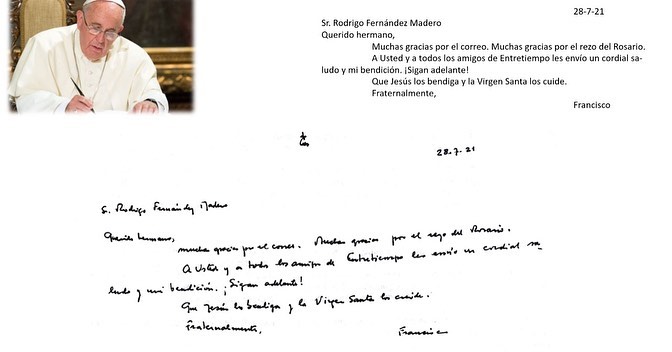 28-7-21
Sr. Rodrigo Fernández Madero
Querido hermano,
Muchas gracias por el correo. Muchas gracias por el rezo del Rosario.
A Usted y a todos los amigos de Entretiempo les envío un cordial sa-
ludo y mi bendición. ¡Sigan adelante!
Que Jesús los bendiga y la Virgen Santa los cuide.
Fraternalmente,
Francisco
28.7.21
S. Rodrigo Fernández Madero
Querido hermano,
muchas gracias por el correo. Muchas gracias por el rezo del Rosario.
A Usted y a todos los amigos de Entretiempo les envío un cordial sa-
ludo y mi bendición. ¡Sigan adelante!
Que Jesús los bendiga y la Virgen Santa los cuide.
Fraternalmente,
Francisco